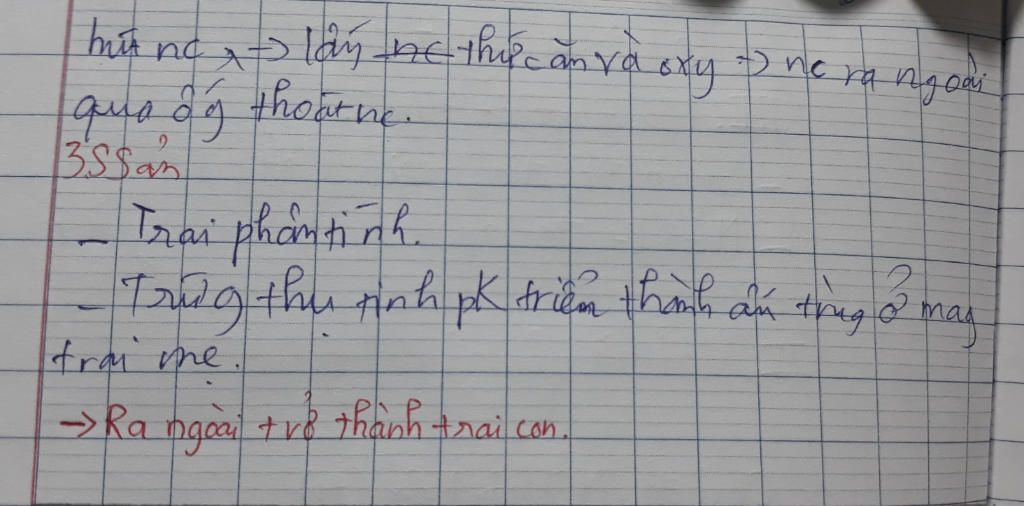 hút nc → lấy nc thức ăn và oxy → nc ra ngoài
qua ốg thoát nc.
3. S Sản
– Trai phân tính.
– Trứg thụ tinh pK triển thành ấu trùg ở mag
trai mẹ.
→ Ra ngoài trở thành trai con.